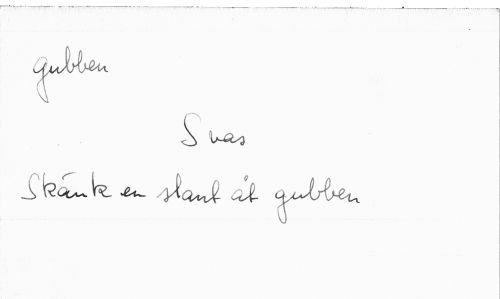 gubben
Svas
Skänk en slant åt gubben